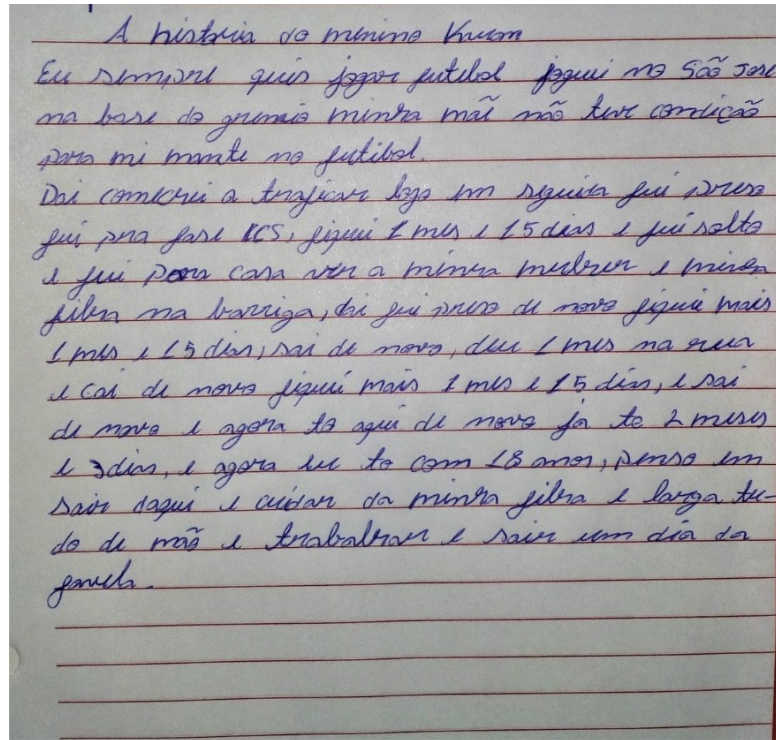 A historia do menino
Eu sempre quis jogar futebol joguei no São José
na base do gremio minha mãe não teve condição
para mi mante no futibol.
Dai comecei a traficar logo em seguida fui preso
fui pra fase ICS, fiquei 1 mes e 15 dias e fui solto
e fui para casa ver a minha mulher e minha
filha na barriga, dai fui preso de novo fiquei mais
1 mes e 15 dias, sai de novo, deu 1 mes na rua
e cai de novo fiquei mais 1 mes e 15 dias, e sai
de novo e agora to aqui de novo já to 2 meses
e 3 dias, e agora eu to com 18 anos, penso em
sair daqui e cuidar da minha filha e larga tu-
do de mão e trabalhar e sair um dia da
favela.